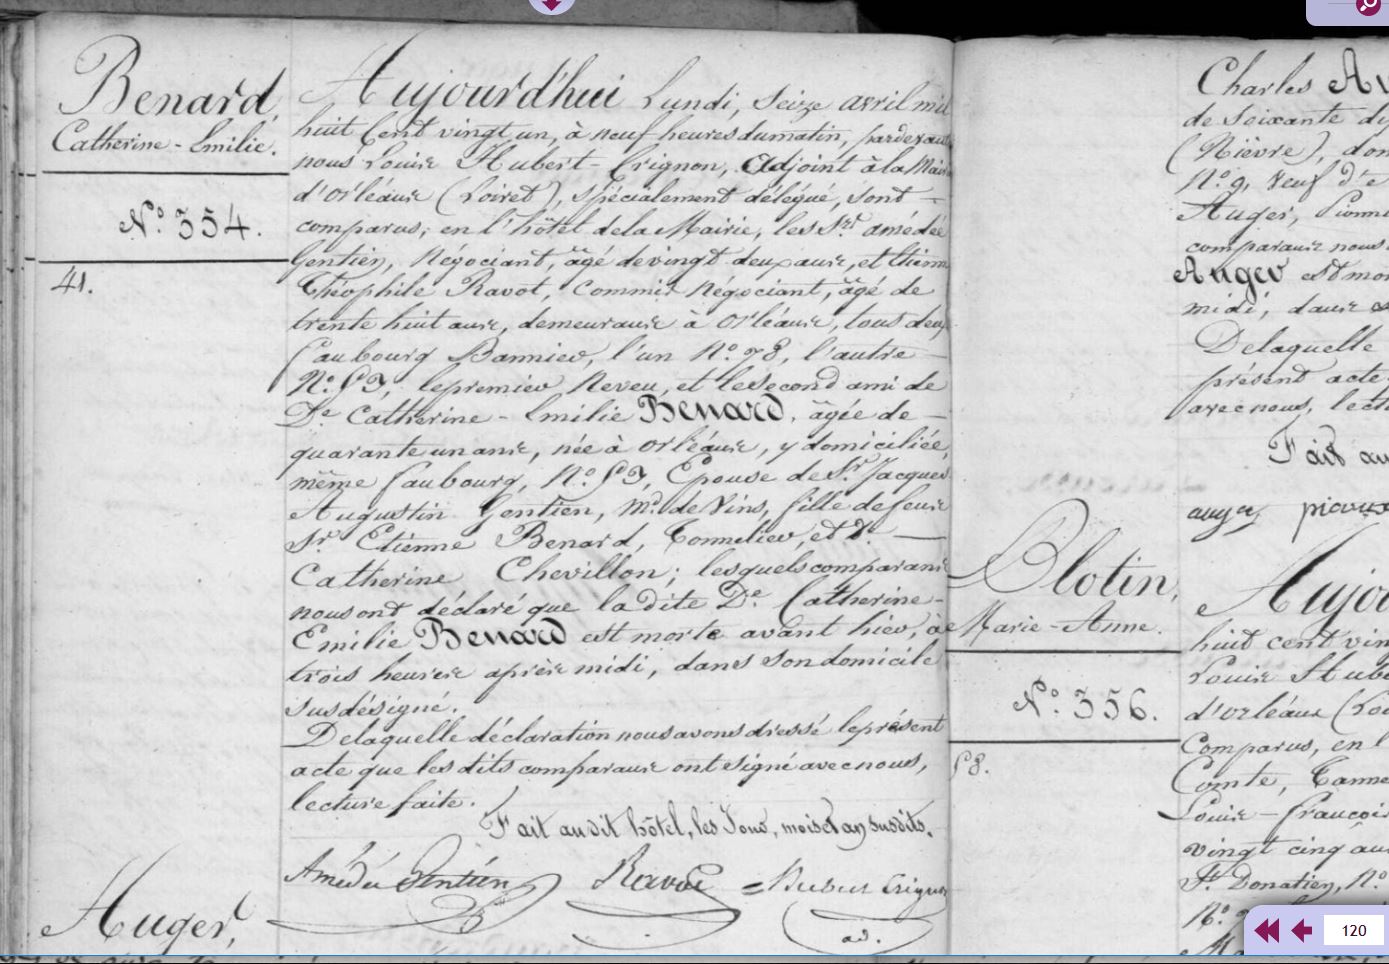 Benard,
Catherine-Emilie.
N.º 354.
41.
Aujourd'hui Lundi, Seize avril mil
huit Cent vingt un, à neuf heures du matin, pardevant
nous Louis Hubert-Crignon, Adjoint à la Mairie
d'Orléans (Loiret), spécialement délégué, sont —
comparus, en l'hôtel de la Mairie, les Srs. amédée
Gentien, Négociant, âgé de vingt deux ans, et Etienne
Théophile Ravot, Commis Négociant, âgé de
trente huit ans, demeurans à Orléans, tous deux
faubourg Bannier, l'un N.º 78, l'autre —
N.º 53, le premier Neveu, et le Second ami de
De. Catherine-Emilie Benard, âgée de —
quarante un ans, née à Orléans, y domiciliée,
même faubourg, N.º 53, Epouse de Sr. Jacques
Augustin Gentien, Md. de Vins, fille de feus
Sr. Etienne Benard, Tonnelier, et D. —
Catherine Chevillon; lesquels comparans
nous ont déclaré que la dite De. Catherine-
Emilie Benard est morte avant hier, à
trois heures après midi, dans son domicile
susdésigné.
De laquelle déclaration nous avons dressé le présent
acte que les dits comparans ont signé avec nous,
lecture faite.
Fait au dit hôtel, les Jour, mois et an susdits.
Amédée Gentien Ravot Hubert Crignon
ad.
Auger,
Charles Au
de soixante di
(Nièvre), dom
N.º 9, veuf d'e
Auger, Pionni
comparans nous
Auger est mor
midi, dans
De laquelle
présent acte
avec nous, lect
Fait au
auger
Plotin,
Marie-Anne.
N.º 356.
53.
Aujou
huit cent vin
Louis Hube
d'Orléans (Loi
Comparus, en l
Comte, Tanne
Louis-françois
vingt cinq ans
St. Donatien, N.º
N.º
120